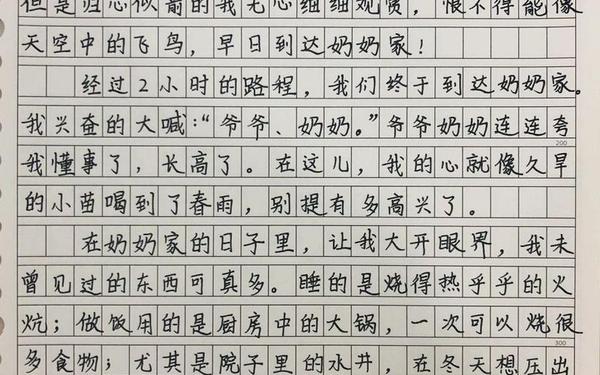 但是归心似箭的我无心细细观赏，恨不得能像
天空中的飞鸟，早日到达奶奶家！
经过2小时的路程，我们终于到达奶奶家。
我兴奋的大喊：“爷爷、奶奶。”爷爷奶奶连连夸
200
我懂事了，长高了。在这儿，我的心就像久旱
的小苗喝到了春雨，别提有多高兴了。
在奶奶家的日子里，让我大开眼界，我未
曾见过的东西可真多。睡的是烧得热乎乎的火
炕；做饭用的是厨房中的大锅，一次可以烧很
300
多食物；尤其是院子里的水井，在冬天想压出